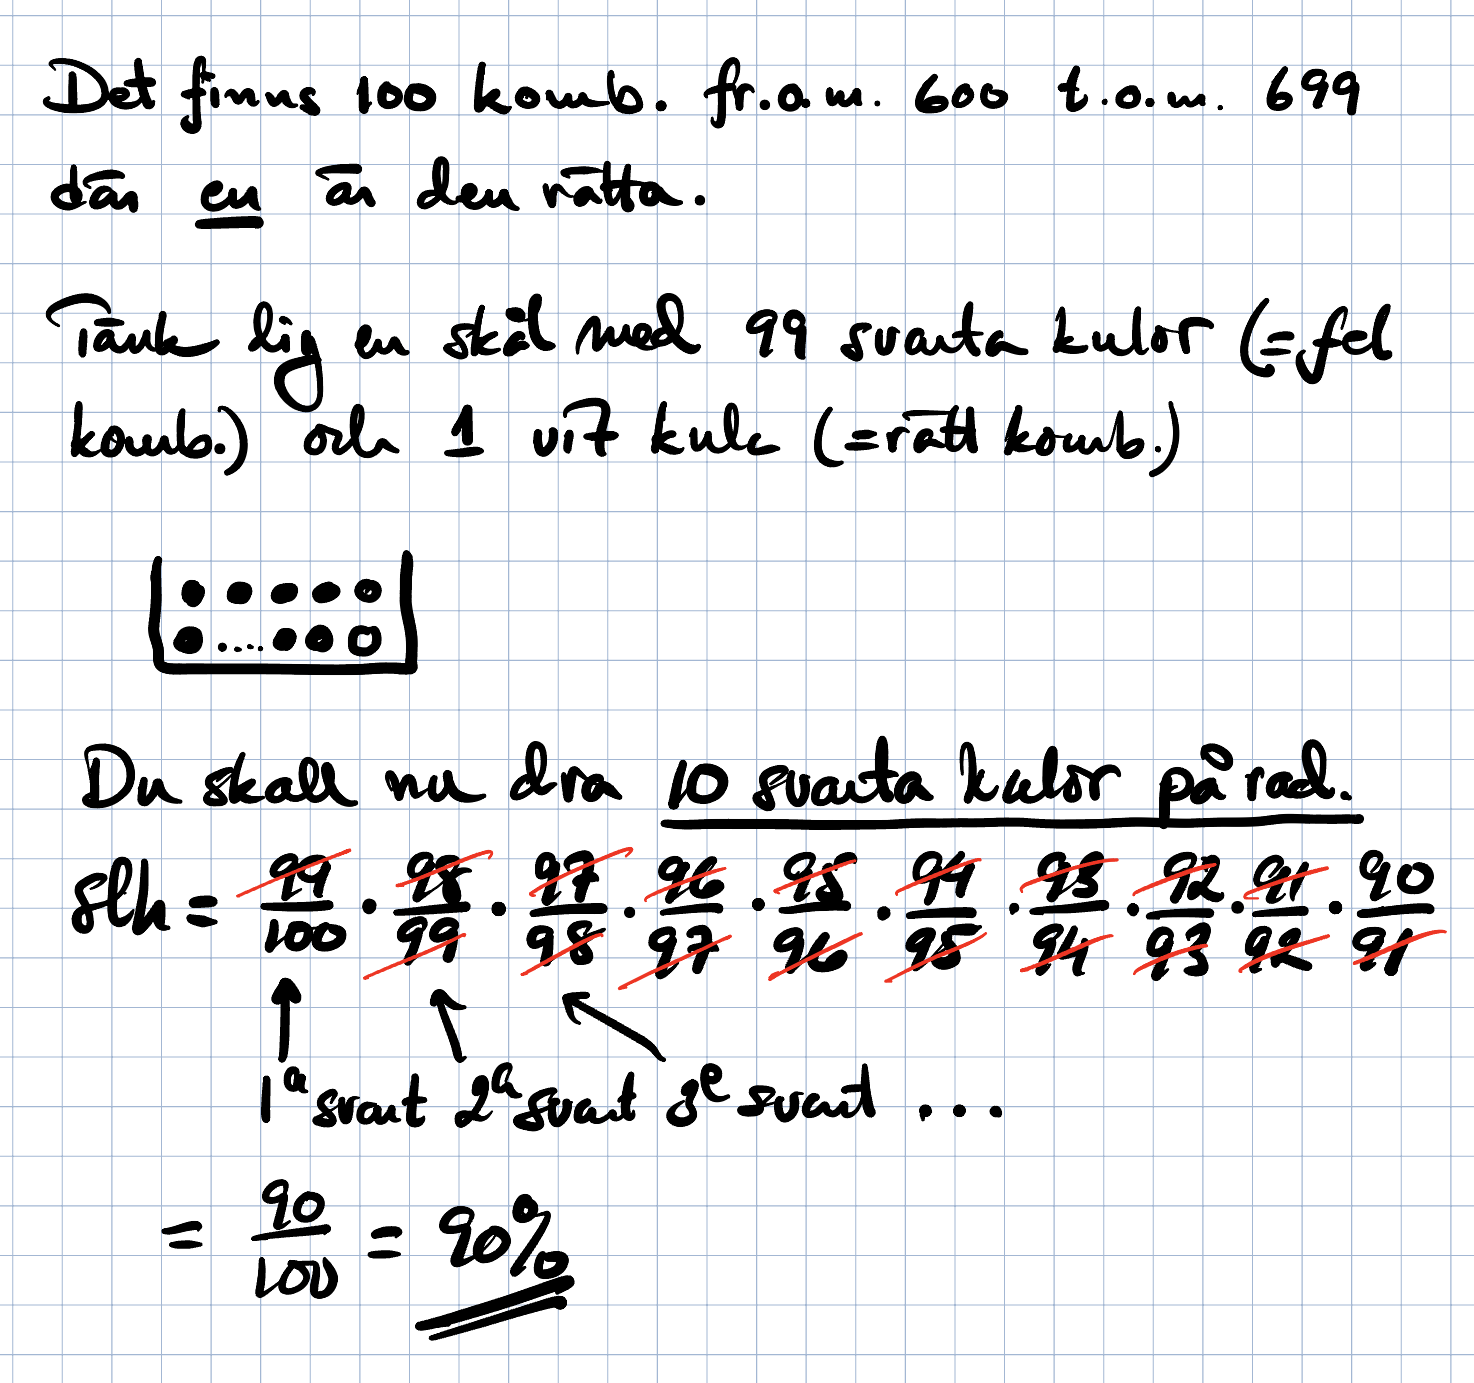 Det finns 100 komb. fr.o.m. 600 t.o.m. 699
där en är den rätta.
Tänk dig en skål med 99 svarta kulor (=fel
komb.) och 1 vit kula (=rätt komb.)
Du skall nu dra 10 svarta kulor på rad.
slh = 99/100 · 98/99 · 97/98 · 96/97 · 95/96 · 94/95 · 93/94 · 92/93 · 91/92 · 90/91
1a svart 2a svart 3e svart ...
= 90/100 = 90%